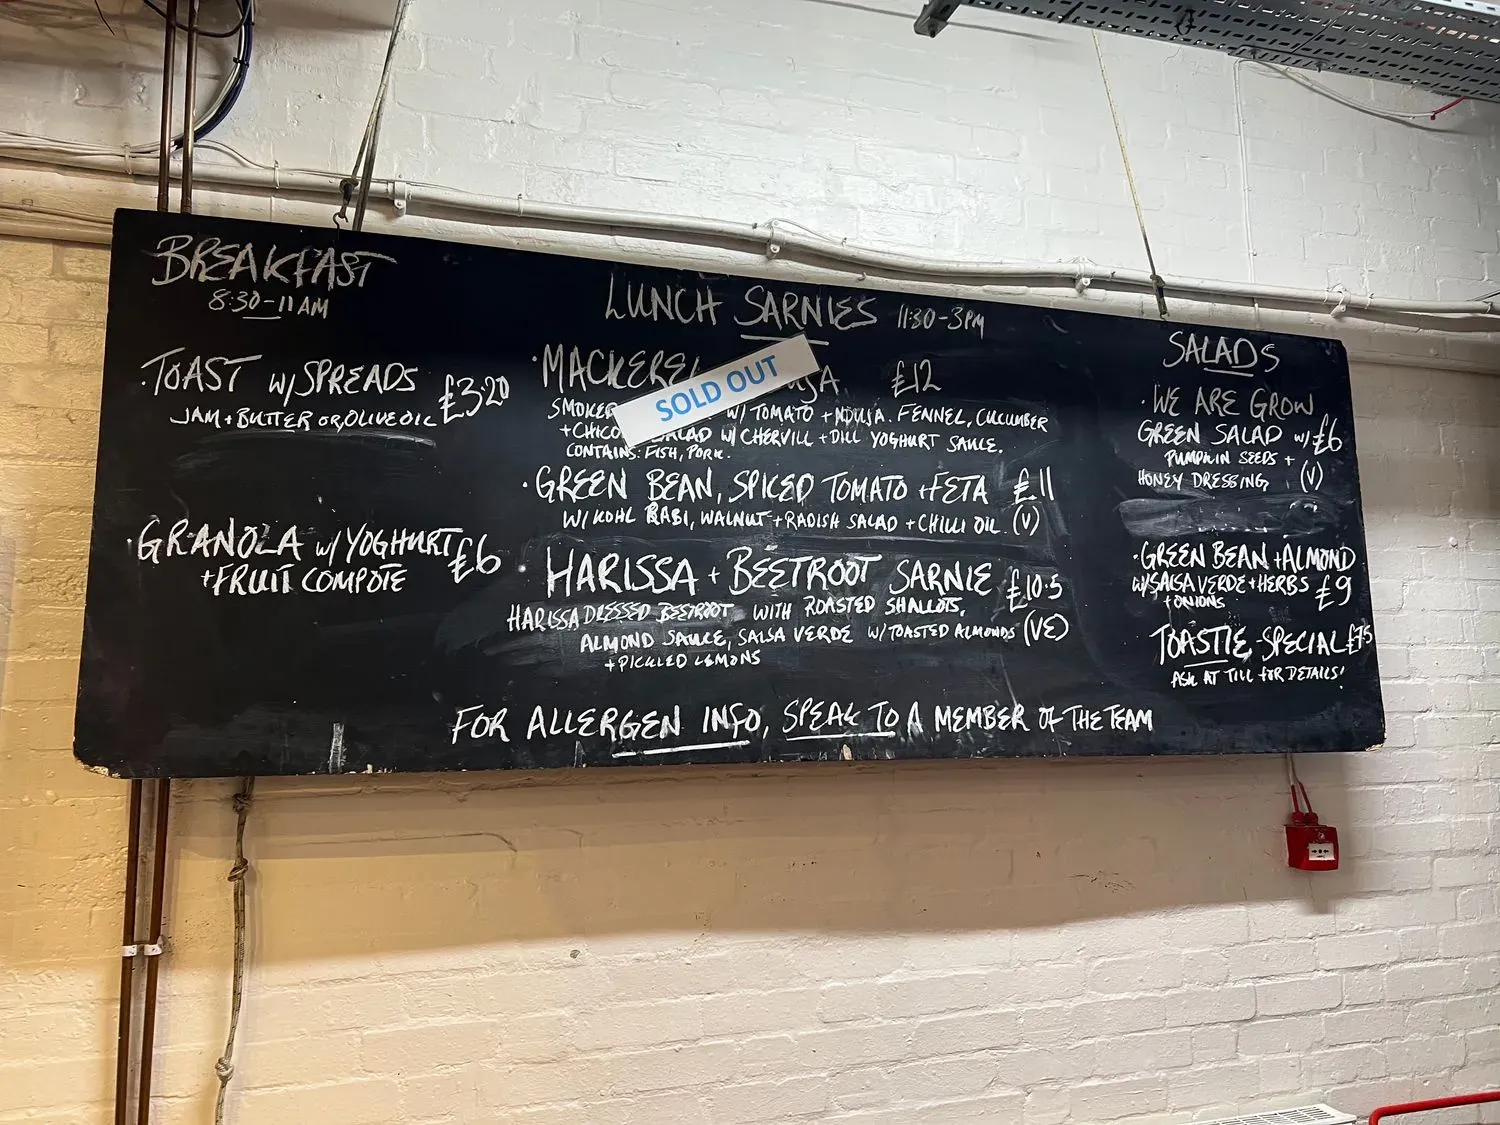 BREAKFAST
8:30-11AM
·TOAST W/ SPREADS £3·20
JAM + BUTTER OR OLIVE OIL
·GRANOLA W/ YOGHURT £6
+ FRUIT COMPOTE
LUNCH SARNIES 11:30-3PM
·MACKEREL £12
SOLD OUT
W/ TOMATO + NDUJA. FENNEL, CUCUMBER
SALAD W/ CHERVILL + DILL YOGHURT SAUCE.
CONTAINS: FISH, PORK.
·GREEN BEAN, SPICED TOMATO + FETA £11
W/ KOHL RABI, WALNUT + RADISH SALAD + CHILLI OIL (V)
·HARISSA + BEETROOT SARNIE £10·5
HARISSA DRESSED BEETROOT WITH ROASTED SHALLOTS,
ALMOND SAUCE, SALSA VERDE W/ TOASTED ALMONDS (VE)
+ PICKLED LEMONS
SALADS
·WE ARE GROW
GREEN SALAD W/ £6
PUMPKIN SEEDS +
HONEY DRESSING (V)
·GREEN BEAN + ALMOND
W/ SALSA VERDE + HERBS £9
+ ONIONS
TOASTIE SPECIAL £7·5
ASK AT TILL FOR DETAILS!
FOR ALLERGEN INFO, SPEAK TO A MEMBER OF THE TEAM